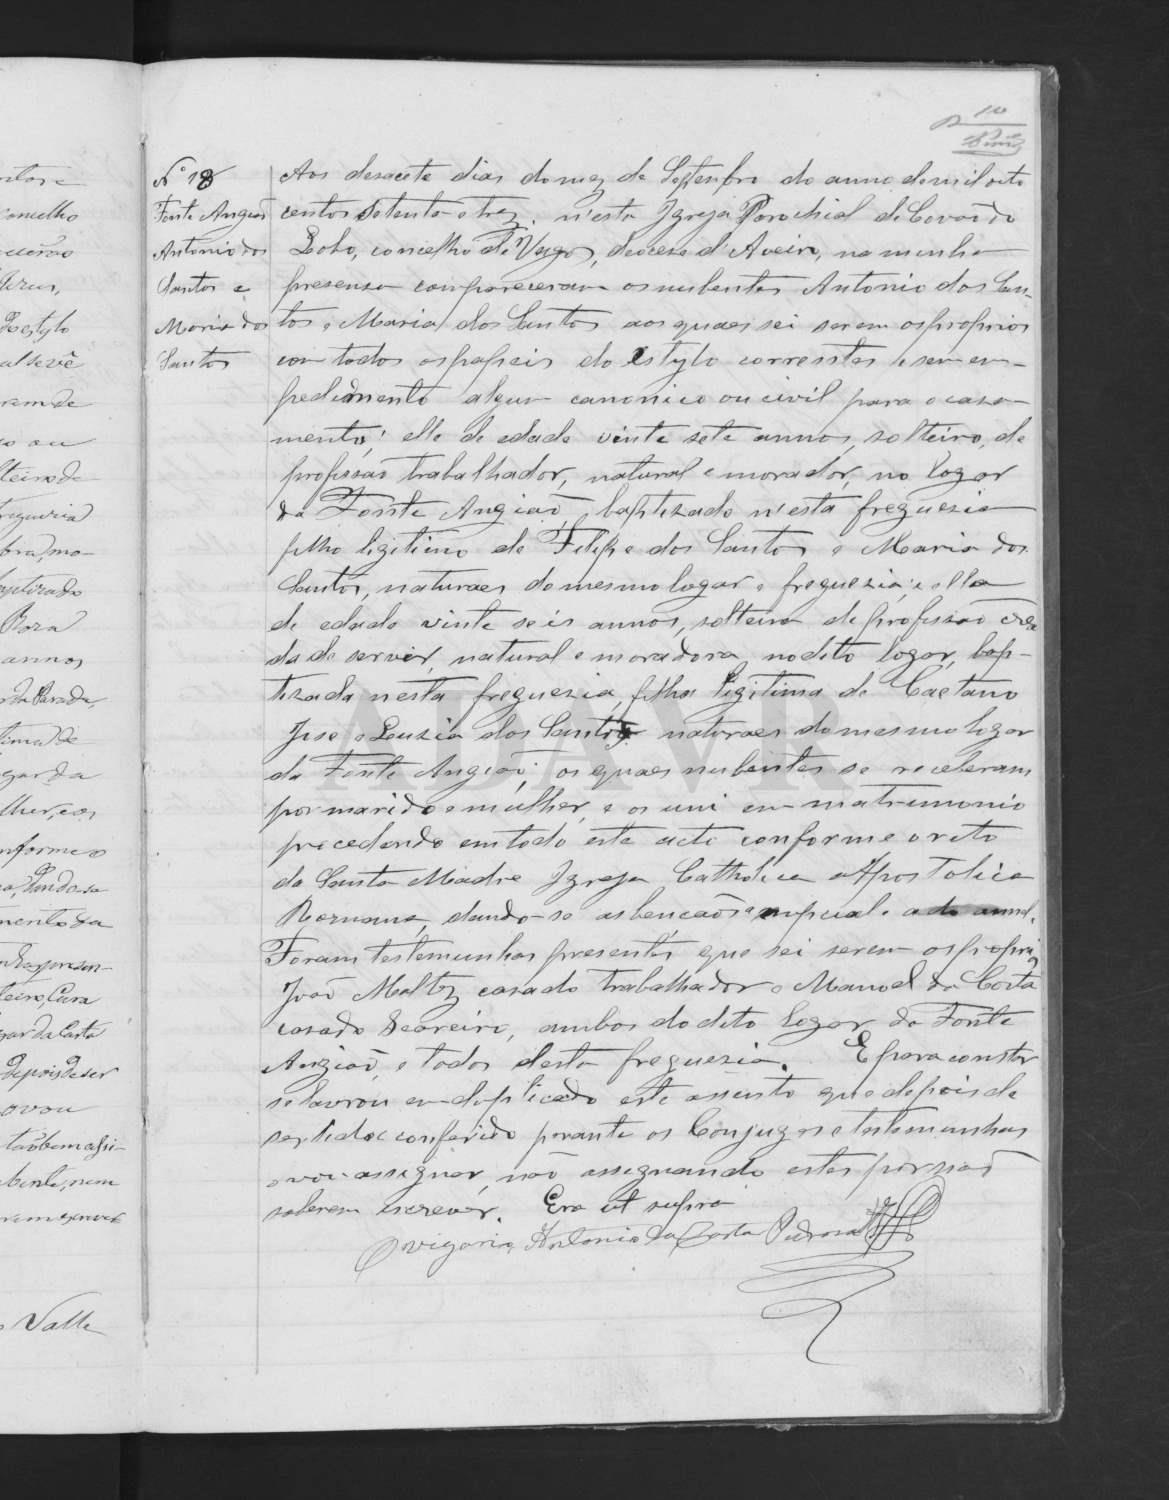 10
Nº 18
Fonte Angião
Antonio dos
Santos e
Maria dos
Santos
Aos desacete dias do mez de Septembro do anno de mil oito
centos setenta e trez, n'esta Igreja Parochial de Covão do
Lobo, concelho de Vagos, diocese d'Aveiro, na minha
presensa compareceram os nubentes Antonio dos San-
tos e Maria dos Santos aos quaes sei serem os proprios
com todos os papeis do estylo correntes e sem em-
pedimento algum canonico ou civil para o casa-
mento; elle de edade vinte sete annos, solteiro, de
profissão trabalhador, natural e morador, no logar
da Fonte Angião, baptizado n'esta freguezia
filho ligitimo de Felipe dos Santos e Maria dos
Santos, naturaes do mesmo logar e freguezia; e ella
de edade vinte seis annos, solteira de profissão crea
da de servir, natural e moradora no dito logar, bap-
tizada nesta freguezia, filha ligitima de Caetano
Jose e Luzia dos Santos naturaes do mesmo logar
da Fonte Angião; os quaes nubentes se receberam
por marido e mulher, e os uni em matrimonio
procedendo em todo este acto conforme o rito
da Santa Madre Igreja Catholica Apostolica
Romana, dando-se as bençãos
Foram testemunhas presentes, que sei serem os proprios
João casado trabalhador e Manoel da Costa
casado Seareiro, ambos do dito logar da Fonte
Angião, e todos desta freguezia. E para constar
se lavrou em duplicado este assento que depois de
ser lido e conferido perante os Conjuges e testemunhas
o vou assignar, não assignando estes por não
saberem escrever. Era ut supra
O vigario Antonio da Costa Pedrosa
ADAVR
concelho
Do estylo
rem de
teiro de
freguezia
baptizado
Roza
annos
da Parada,
tima de
gar da
lher, e os
nforme o
mento da
Cura
gar da Costa
Depois de ser
ovou
Valle